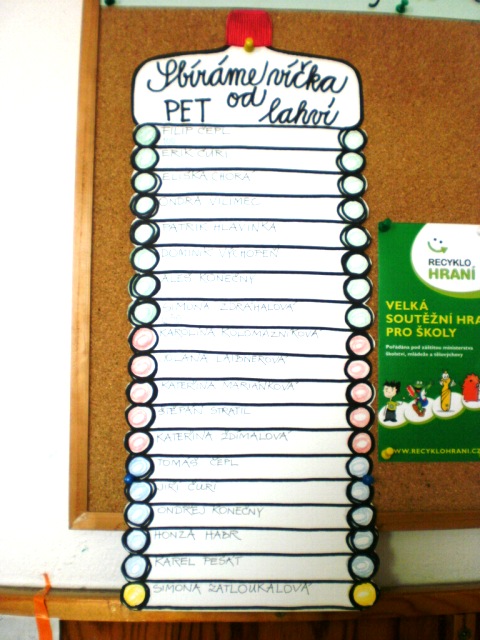 Sbíráme víčka
od
PET lahví
FILIP ČEPL
ERIK ČURI
ELIŠKA CHORÁ
ONDRA VILÍMEC
PATRIK HLAVINKA
DOMINIK
ALEŠ KONEČNÝ
SIMONA ZDRÁHALOVÁ
KAROLÍNA KOLOMAZNÍKOVÁ
KATEŘINA MARIÁNKOVÁ
ŠTĚPÁN STRATIL
KATEŘINA ŽDÍMALOVÁ
TOMÁŠ ČEPL
JIŘÍ ČURI
ONDŘEJ KONEČNÝ
HONZA HÁBR
KAREL PEŠAT
SIMONA ZATLOUKALOVÁ
RECYKLO
HRANÍ
VELKÁ
SOUTĚŽNÍ HRA
PRO ŠKOLY
Pořádána pod záštitou ministerstva
školství, mládeže a tělovýchovy
WWW.RECYKLOHRANI.CZ